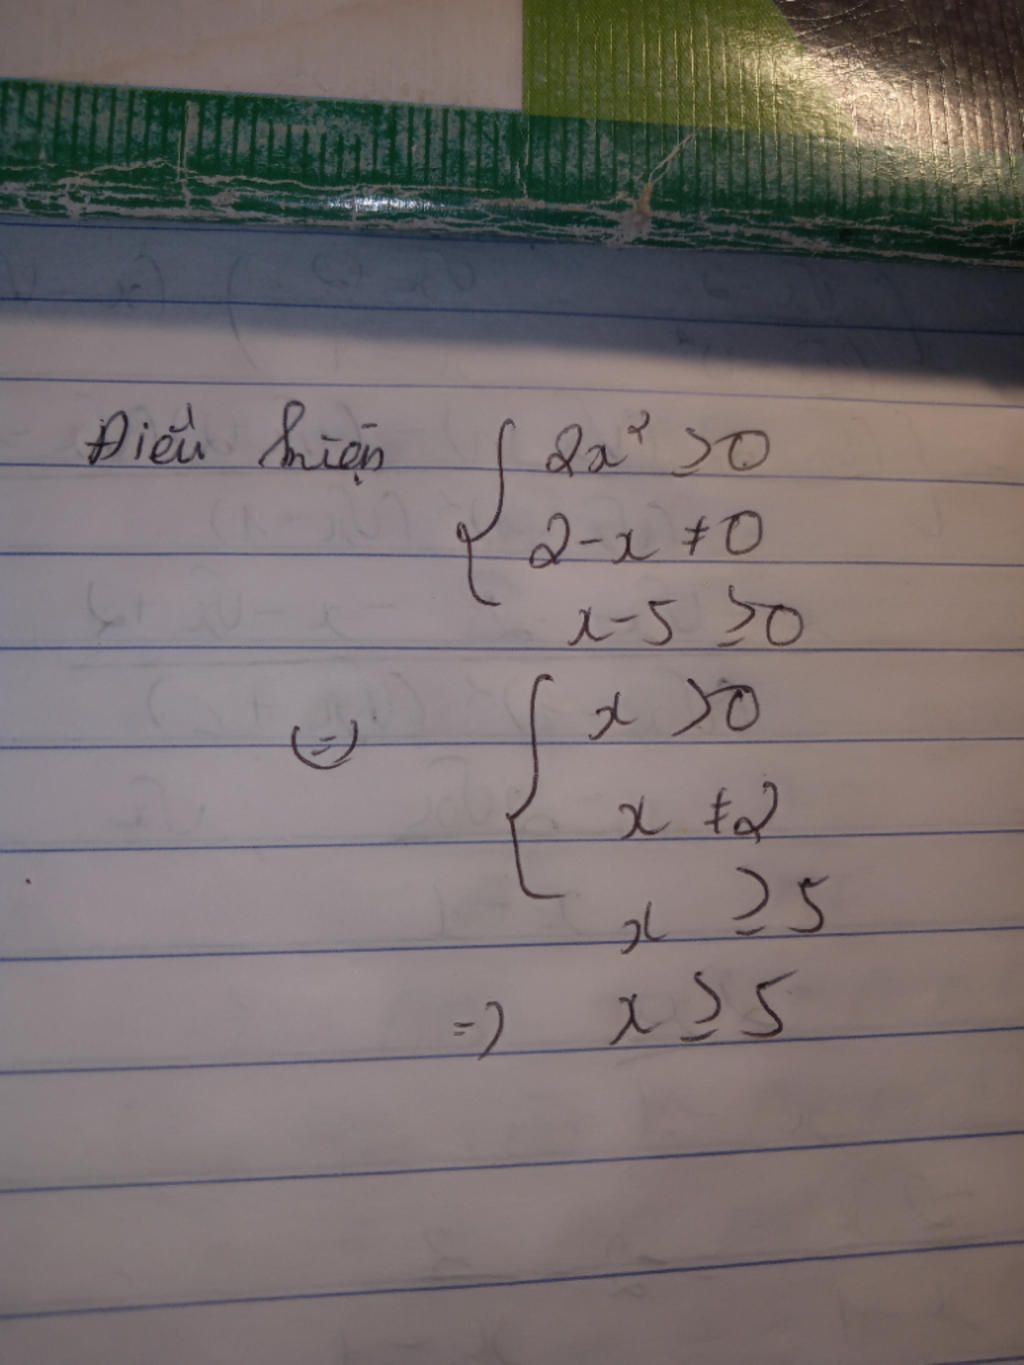 Điều kiện { 2x² ≥ 0
2 - x ≠ 0
x - 5 ≥ 0
(=) { x > 0
x ≠ 2
x ≥ 5
=) x ≥ 5